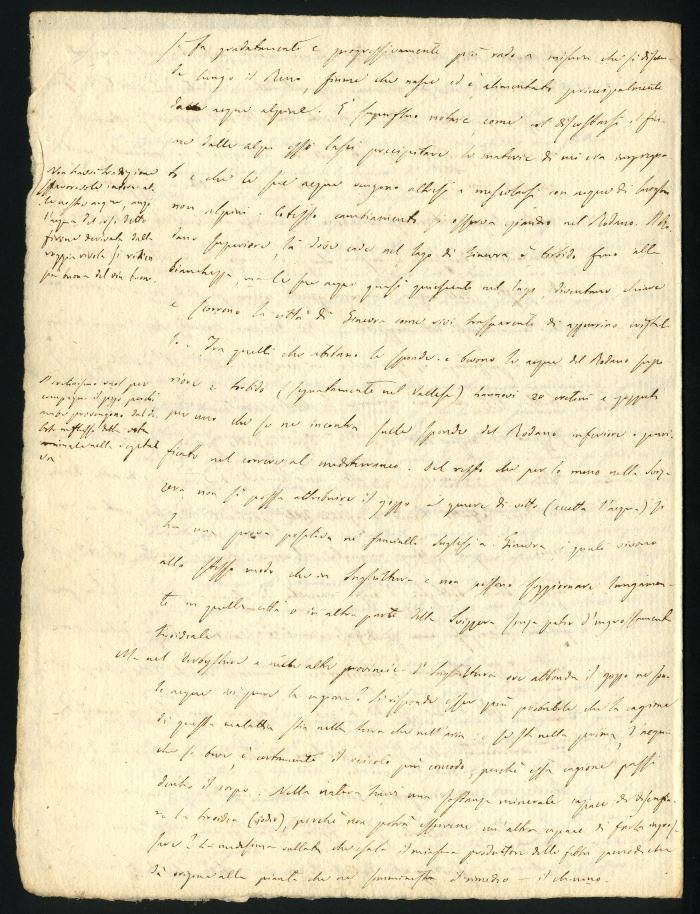 si fa gradatamente e progressivamente più rado a misura che si discen-
de lungo il Reno, fiume che nasce ed è alimentato principalmente
dalle acque alpine. È superfluo notare come al discostarsi il fiu-
me dalle alpi esso lasci precipitare le materie di cui era impregna
to e che le sue acque vengano altresì a mescolarsi con acque di
non alpini. Cotesto cambiamento si osserva giandio nel Rodano. Il Ro-
dano superiore, là dove cade nel lago di Ginevra, è torbido fino alla
bianchezza, ma le sue acque quasi nel lago, diventano chiare
e scorrono la città di Ginevra come rivi trasparenti di azzurrino cristal-
lo. Tra quelli che abitano le sponde e bevono le acque del Rodano supe
riore e torbido (segnatamente nel Vallese) hannovi 20 cretini e gozzuti
per uno che se ne incontra sulle sponde del Rodano inferiore e puri-
ficato nel correre al mediterraneo. Del resto che per lo meno nella Sviz-
zera non si possa attribuire il gozzo al genere di vitto (eccetto l'acqua) si
ha una prova positiva ne' fanciulli Inglesi a Ginevra i quali vivono
allo stesso modo che in Inghilterra e non possono soggiornare lungamen-
te in quella città o in altra parte della Svizzera senza patir d'ingrossamento
tiroidiale.
Ma nel Derbyshire e nelle altre provincie d'Inghilterra ove abbonda il gozzo ne son
le acque eziandio la cagione? Si risponde esser più probabile che la cagione
di questa malattia stia nella terra che nell'aria: e se sta nella prima, l'acqua
che si beve, è certamente il veicolo più comodo, perchè essa cagione passi
dentro il corpo. Nella natura havvi una sostanza minerale capace di disenfia-
re la tiroidea (jodio), perchè non potrà esservene un'altra capace di farla ingros-
sare? La medesima vallata che esala il miasma produttore delle febbri periodiche
dà origine alla pianta che ne somministra il rimedio — il chinino.
Non havvi
favorevole intorno al-
le nostre acque, anzi
l'acqua del
fiume derivata dalla
roggia

compagni il gozzo perchè
ambi provengono dal de-